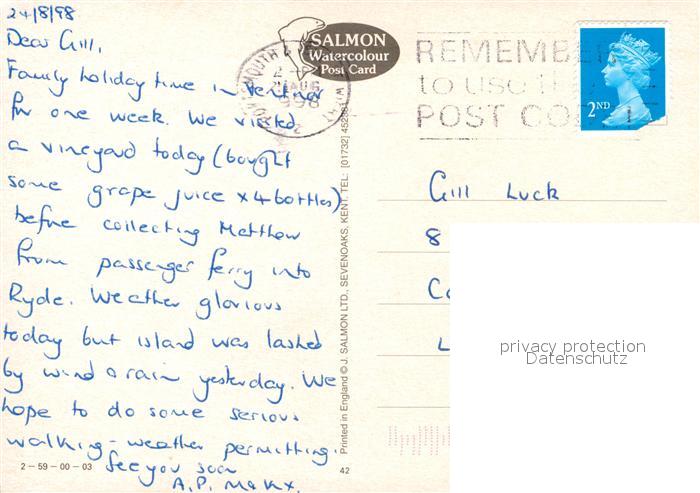 24/8/98
Dear Gill,
Family holiday time in Ventnor
for one week. We visited
a vineyard today (bought
some grape juice x 4 bottles)
before collecting Matthew
from passenger ferry into
Ryde. Weather glorious
today but island was lashed
by wind & rain yesterday. We
hope to do some serious
walking - weather permitting.
See you soon
2-59-00-03
42
SALMON
Watercolour
Post Card
Printed in England © J. SALMON LTD., SEVENOAKS, KENT. TEL: (01732) 452381
AUG
1998
REMEMBER
to use the
POST CODE
2ND
Gill Luck
8
privacy protection
Datenschutz